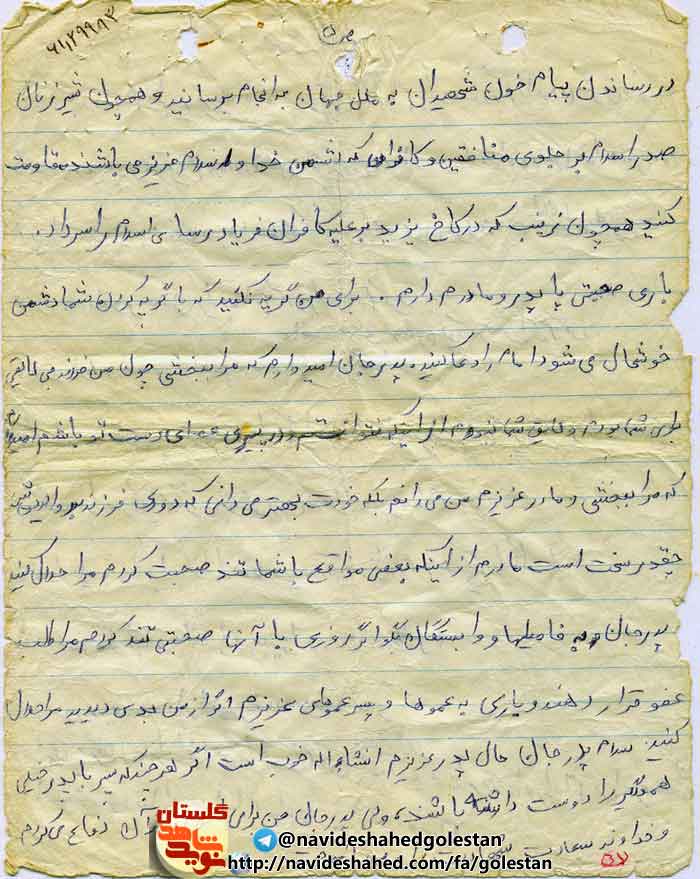 ۶۱۲۹۹۸۳
در رساندن پیام خون شهیدان به ملل جهان به انجام برسانید و همچون شیرزنان
صدر اسلام بر جلوی منافقین و کافرانی که دشمن خدا و اسلام عزیز می باشند مقاومت
کنید همچون زینب که در کاخ یزید بر علیه کافران فریاد رسای اسلام را سر داد.
باری صحبتی با پدر و مادرم دارم. برای من گریه نکنید که با گریه کردن شما دشمن
خوشحال می شود امام را دعا کنید. پدر جان امیدوارم که مرا ببخشی چون من فرزند بی لیاقتی
برای شما بودم و لایق شما نبودم از اینکه نتوانستم در پیری عصای دست تو باشم امیدوارم
که مرا ببخشی و مادر عزیزم من می دانم بلکه خودت بهتر می دانی که دوری فرزند بر والدین
چقدر سخت است مادرم از اینکه بعضی مواقع با شما تند صحبت کردم مرا حلال کنید
پدر جان به فامیلها و وابستگان بگو اگر روزی با آنها صحبتی تند کردم مرا طلب
عفو قرار دهند و یاری به عموها و پسر عموهای عزیزم اگر از من بدی دیدید مرا حلال
کنید. سلام پدر جان حال پدر عزیزم انشاءاله خوب است اگر هر چند که پسر با پدر خیلی
همدیگر را دوست داشته باشند، ولی پدر جان من برای دفاع می کردم
و خداوند سعادت
گلستان
شاهد
نوید
@navideshahedgolestan
http://navideshahed.com/fa/golestan